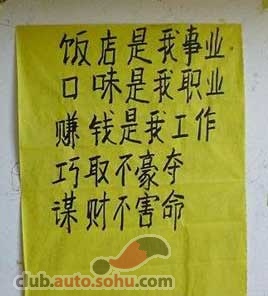 饭店是我事业
口味是我职业
赚钱是我工作
巧取不豪夺
谋财不害命
club.auto.sohu.com